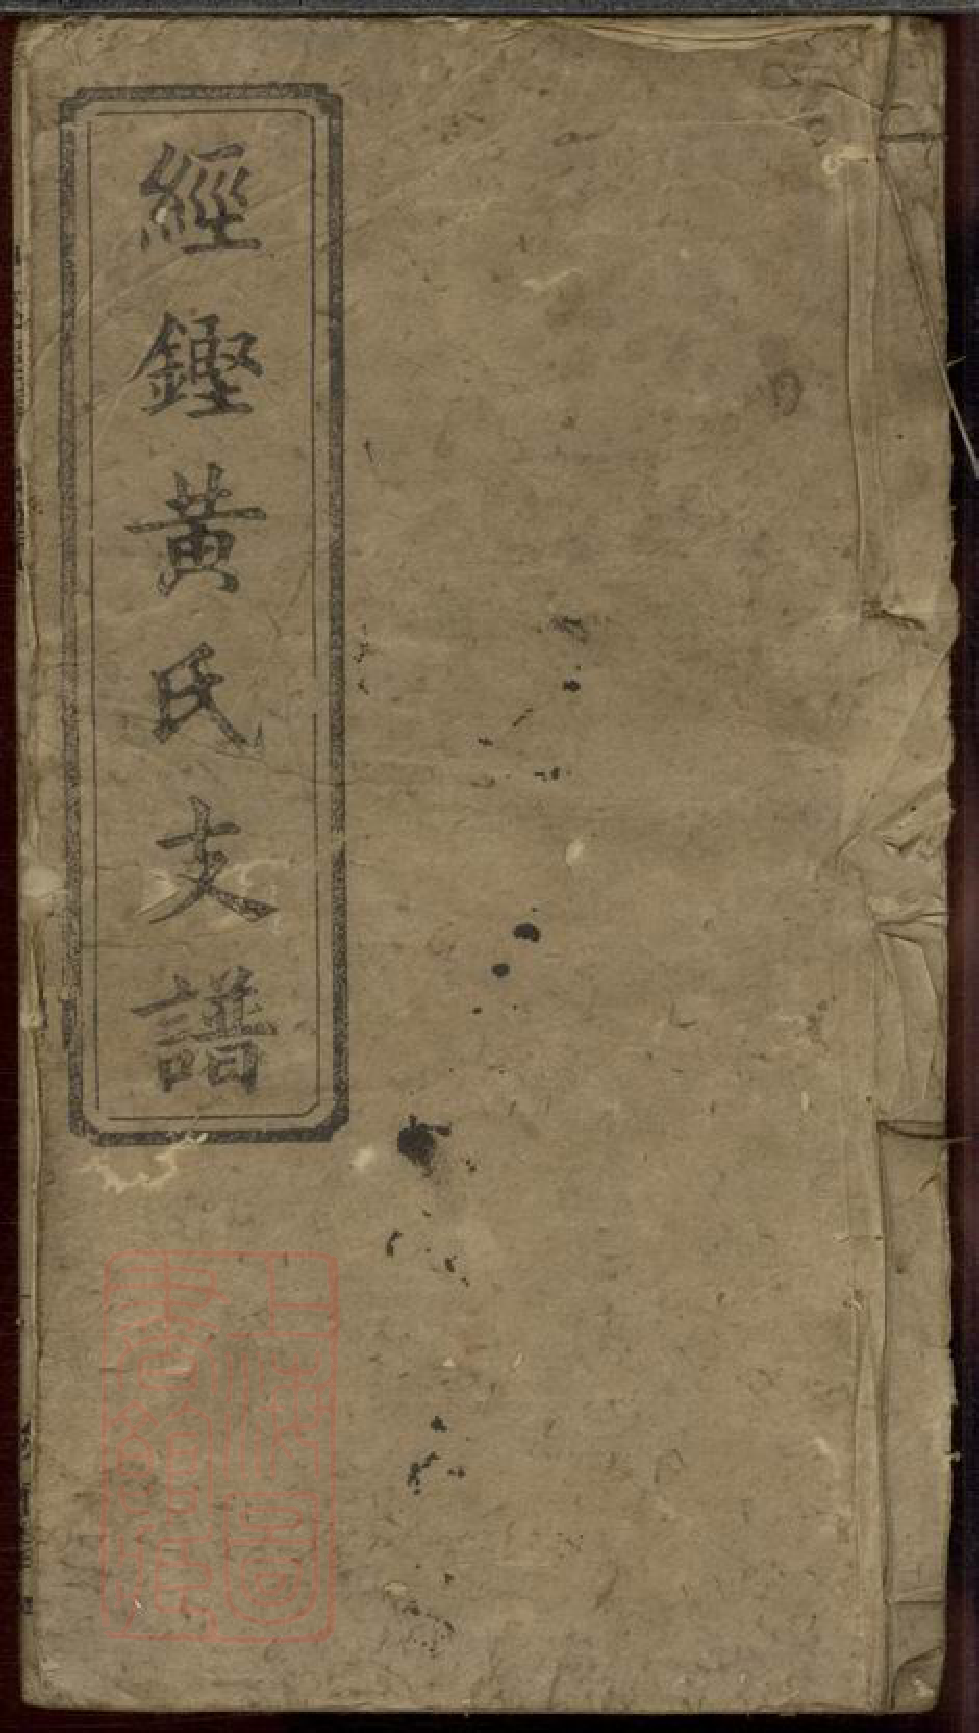 經鏗黃氏支譜
上海圖
書館藏